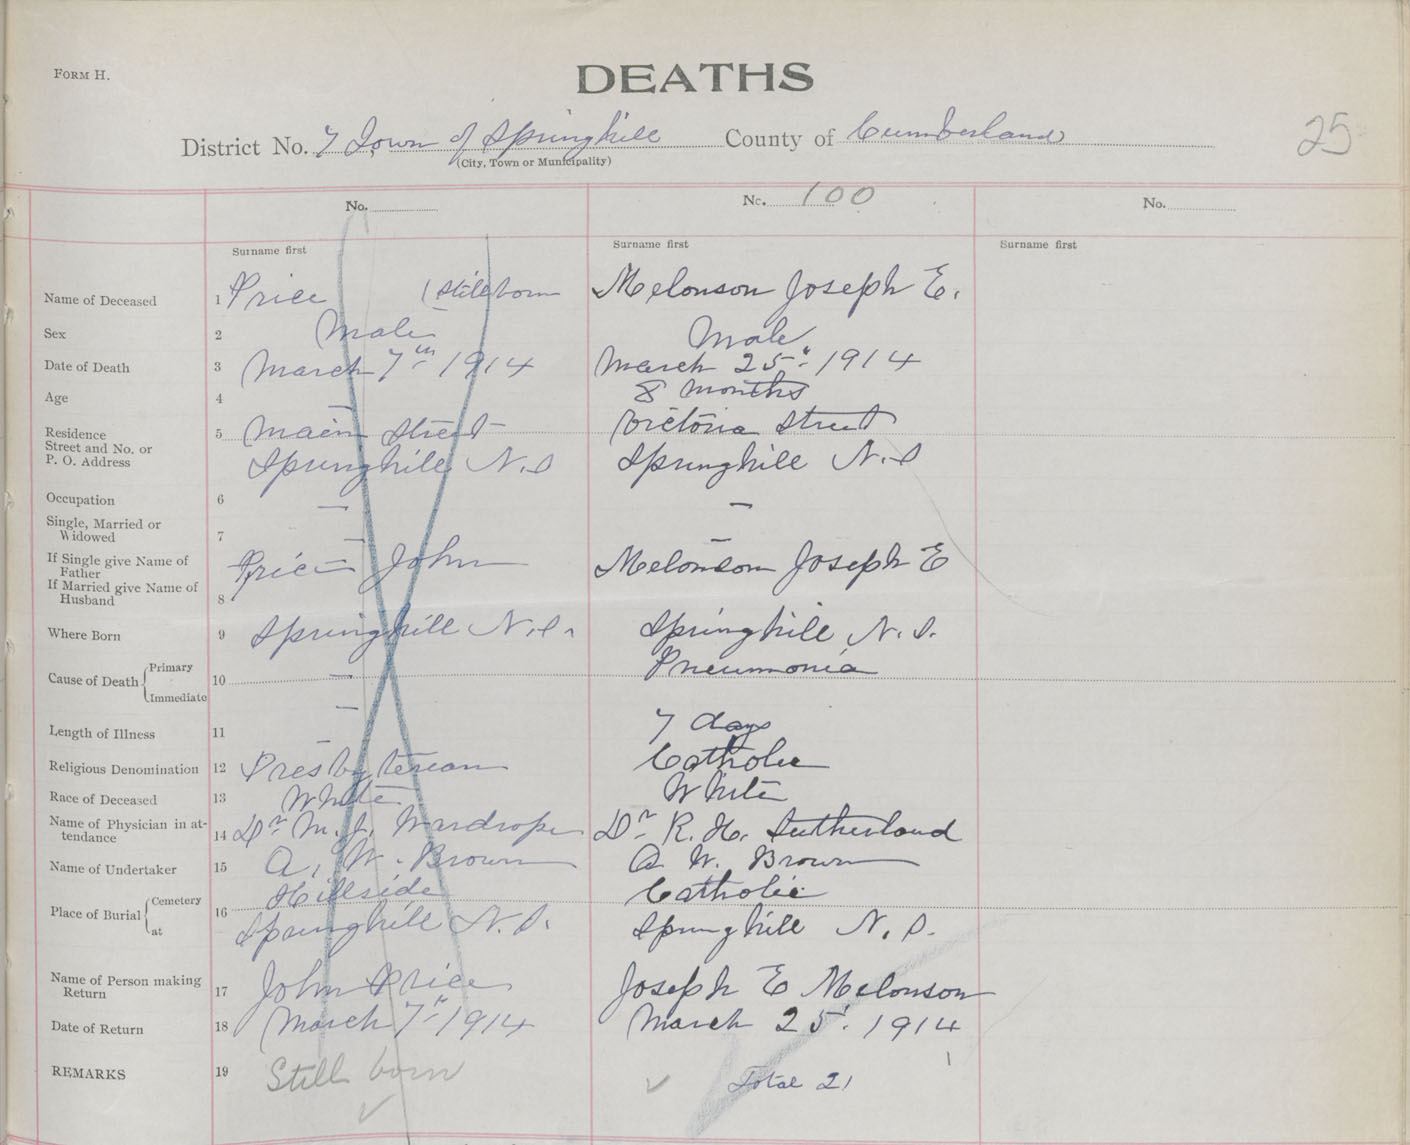 FORM H.
DEATHS
25
District No. 7 Town of Springhill County of Cumberland
(City, Town or Municipality)
No.
No. 100
No.
Surname first
Surname first
Surname first
Name of Deceased 1 Price (Stillborn Melonson Joseph E.
Sex 2 Male Male
Date of Death 3 March 7th 1914 March 25" 1914
Age 4 — 8 months
Residence 5 Main Street Victoria Street
Street and No. or
P. O. Address Springhill N.S Springhill N.S
Occupation 6 — —
Single, Married or
Widowed 7 — —
If Single give Name of
Father Price John Melonson Joseph E
If Married give Name of
Husband 8
Where Born 9 Springhill N.S. Springhill N.S.
Cause of Death { Primary 10 — Pneumonia
Immediate —
Length of Illness 11 — 7 days
Religious Denomination 12 Presbyterian Catholic
Race of Deceased 13 White White
Name of Physician in at-
tendance 14 Dr M. J. Wardrope Dr R. H. Sutherland
Name of Undertaker 15 A. W. Brown A W. Brown
Place of Burial { Cemetery 16 Hillside Catholic
at Springhill N.S. Springhill N.S.
Name of Person making
Return 17 John Price Joseph E Melonson
Date of Return 18 March 7" 1914 March 25. 1914
REMARKS 19 Still born Total 21